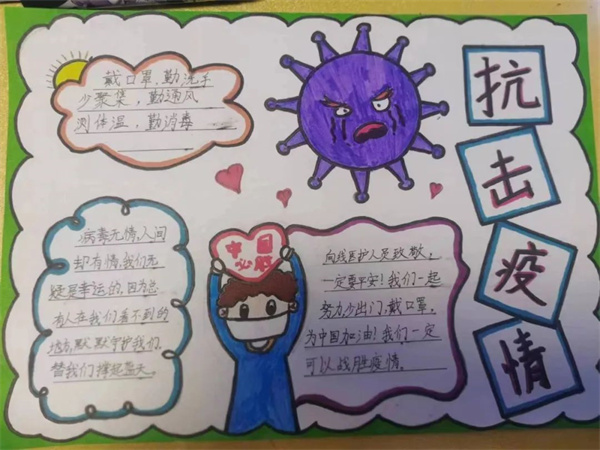 戴口罩,勤洗手
少聚集,勤通风
测体温,勤消毒
抗
击
疫
情
中国
必胜
病毒无情,人间
却有情,我们无
疑是幸运的,因为总
有人在我们看不到的
地方,默默守护我们,
替我们撑起蓝天。
向线医护人员致敬,
一定要平安!我们一起
努力少出门,戴口罩,
为中国加油!我们一定
可以战胜疫情。